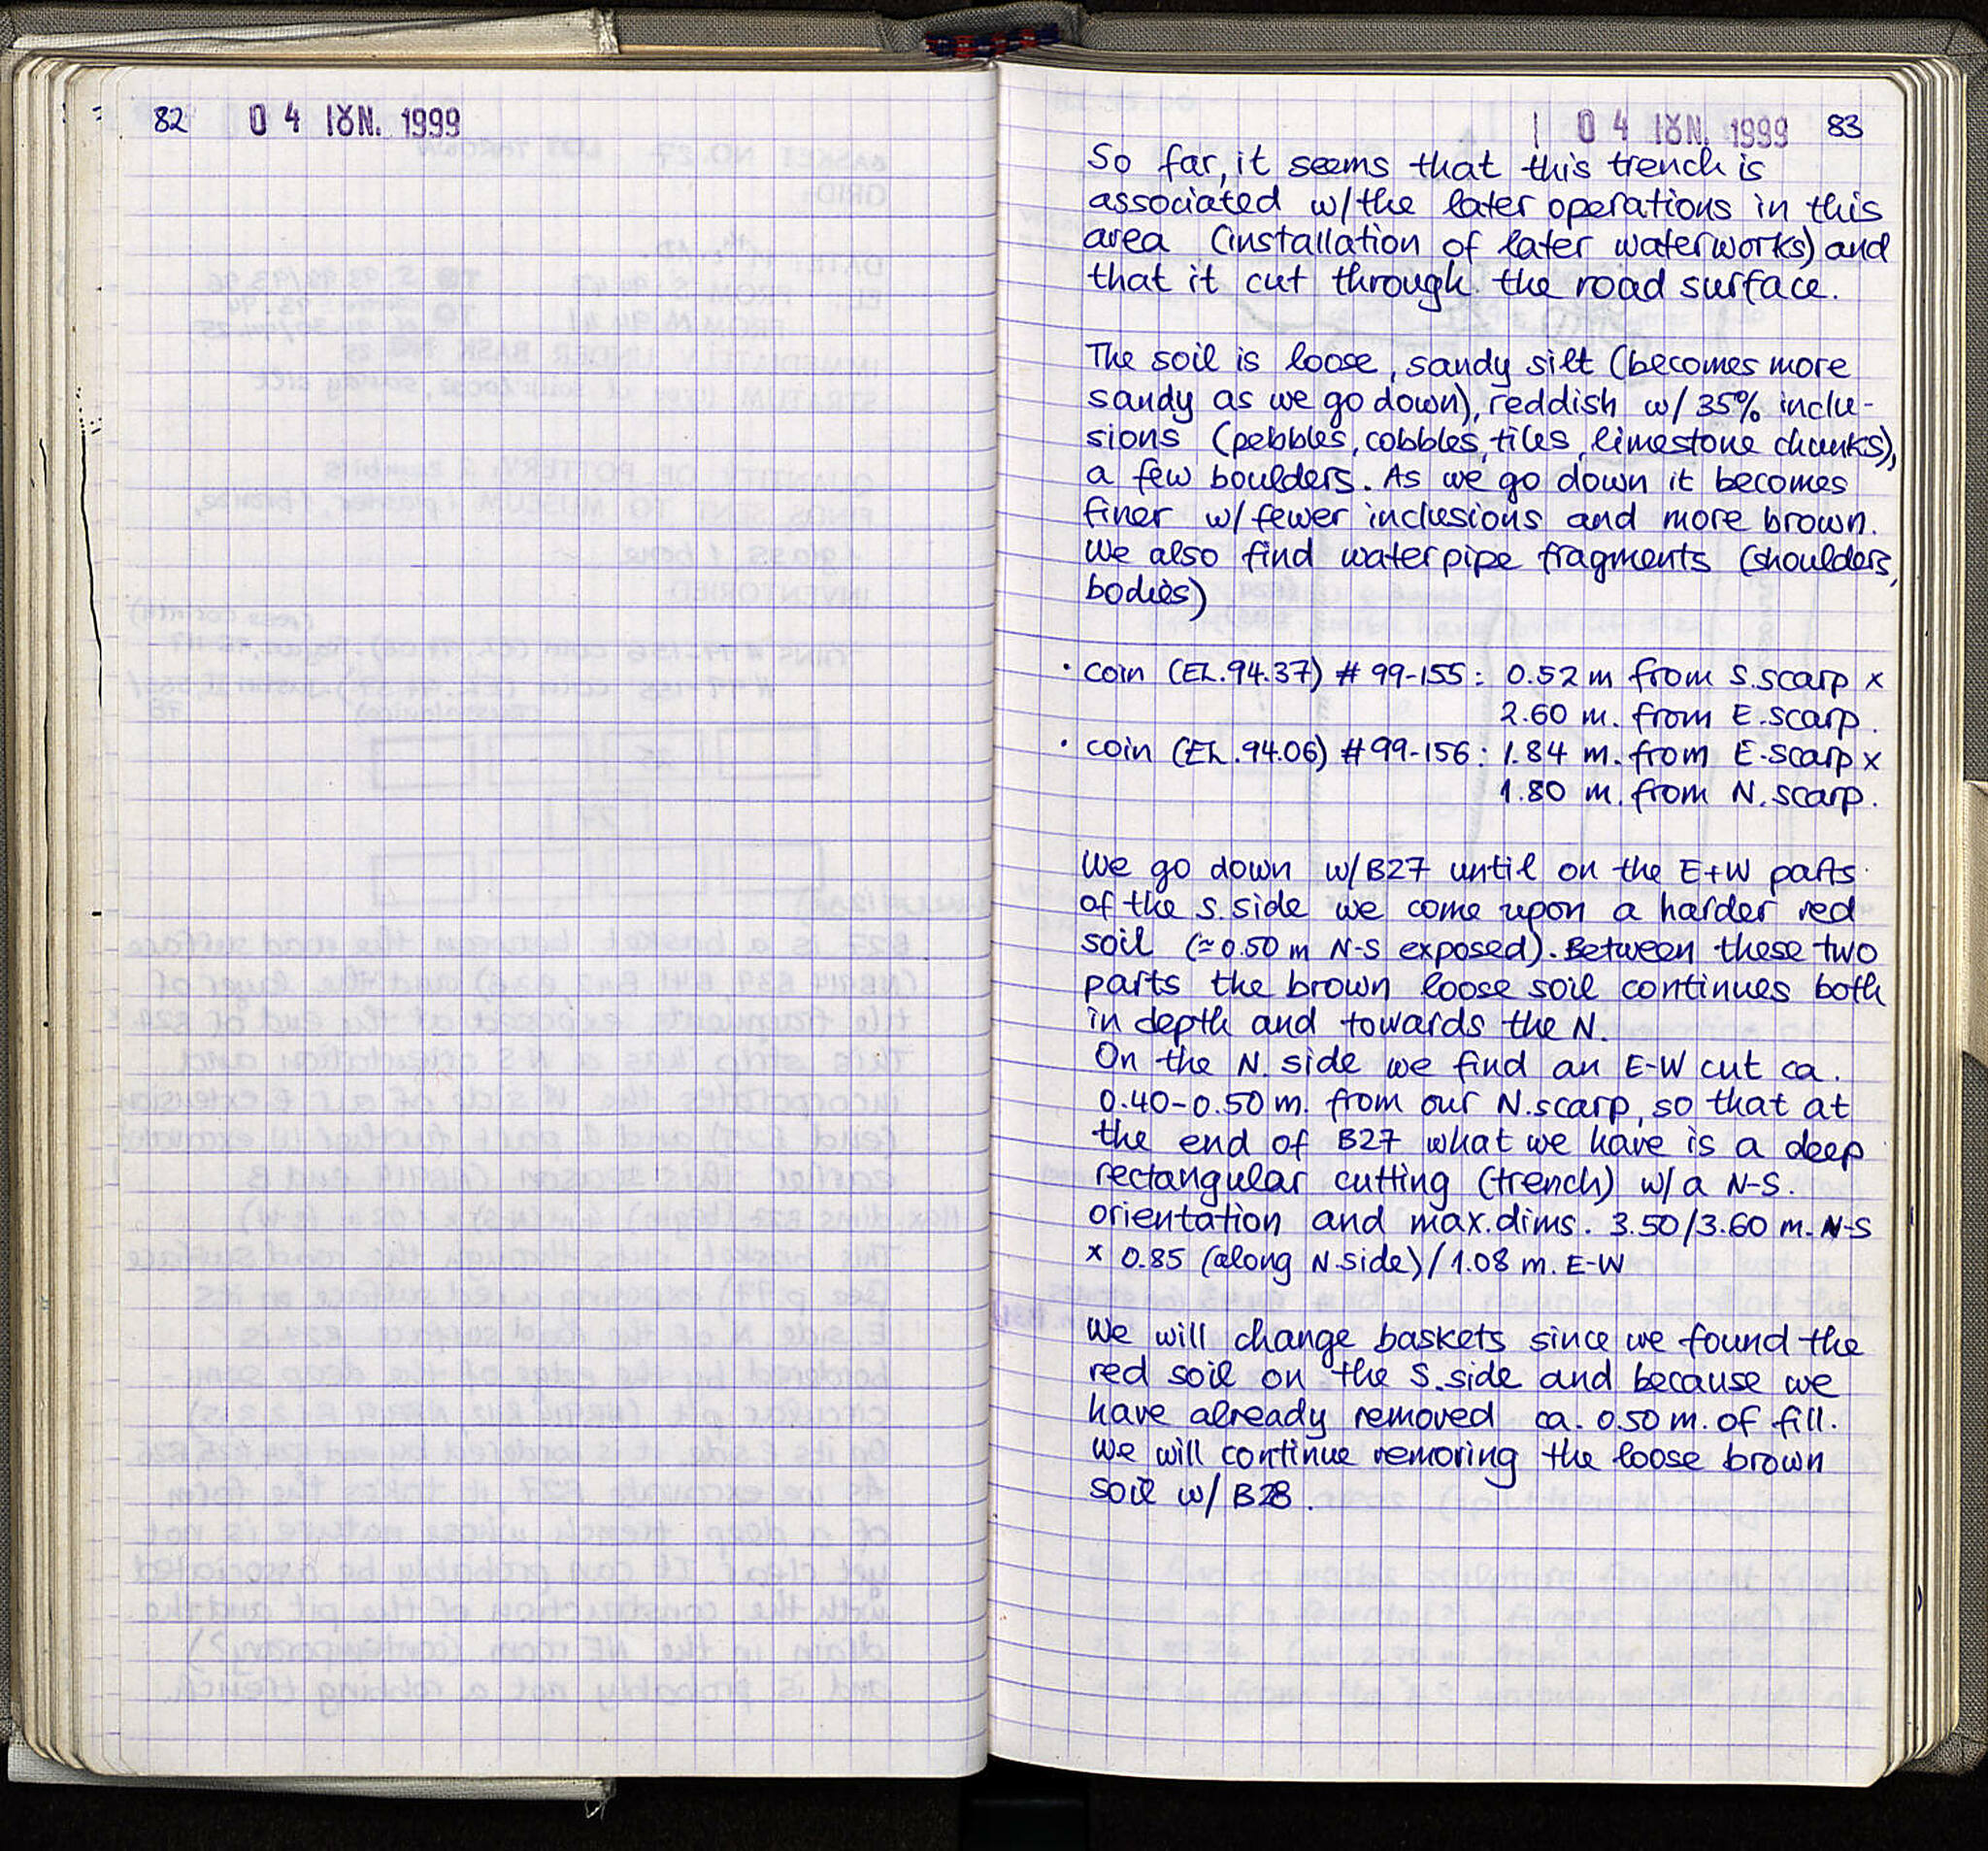 82
0 4 ΙȣΝ. 1999
0 4 ΙȣΝ. 1999
83
So far, it seems that this trench is
associated w/the later operations in this
area (installation of later waterworks) and
that it cut through the road surface.
The soil is loose, sandy silt (becomes more
sandy as we go down), reddish w/ 35% inclu-
sions (pebbles, cobbles, tiles, limestone chunks),
a few boulders. As we go down it becomes
finer w/fewer inclusions and more brown.
We also find waterpipe fragments (shoulders,
bodies)
· coin (EL.94.37) # 99-155: 0.52 m from S.scarp x
2.60 m. from E.scarp.
· coin (EL.94.06) # 99-156: 1.84 m. from E.scarp x
1.80 m. from N.scarp.
We go down w/B27 until on the E+W parts
of the S.side we come upon a harder red
soil (≈0.50 m N-S exposed). Between these two
parts the brown loose soil continues both
in depth and towards the N.
On the N. side we find an E-W cut ca.
0.40-0.50 m. from our N.scarp, so that at
the end of B27 what we have is a deep
rectangular cutting (trench) w/ a N-S.
orientation and max.dims. 3.50/3.60 m. N-S
x 0.85 (along N.side)/1.08 m. E-W
We will change baskets since we found the
red soil on the S.side and because we
have already removed ca. 0.50 m. of fill.
We will continue removing the loose brown
soil w/ B28.